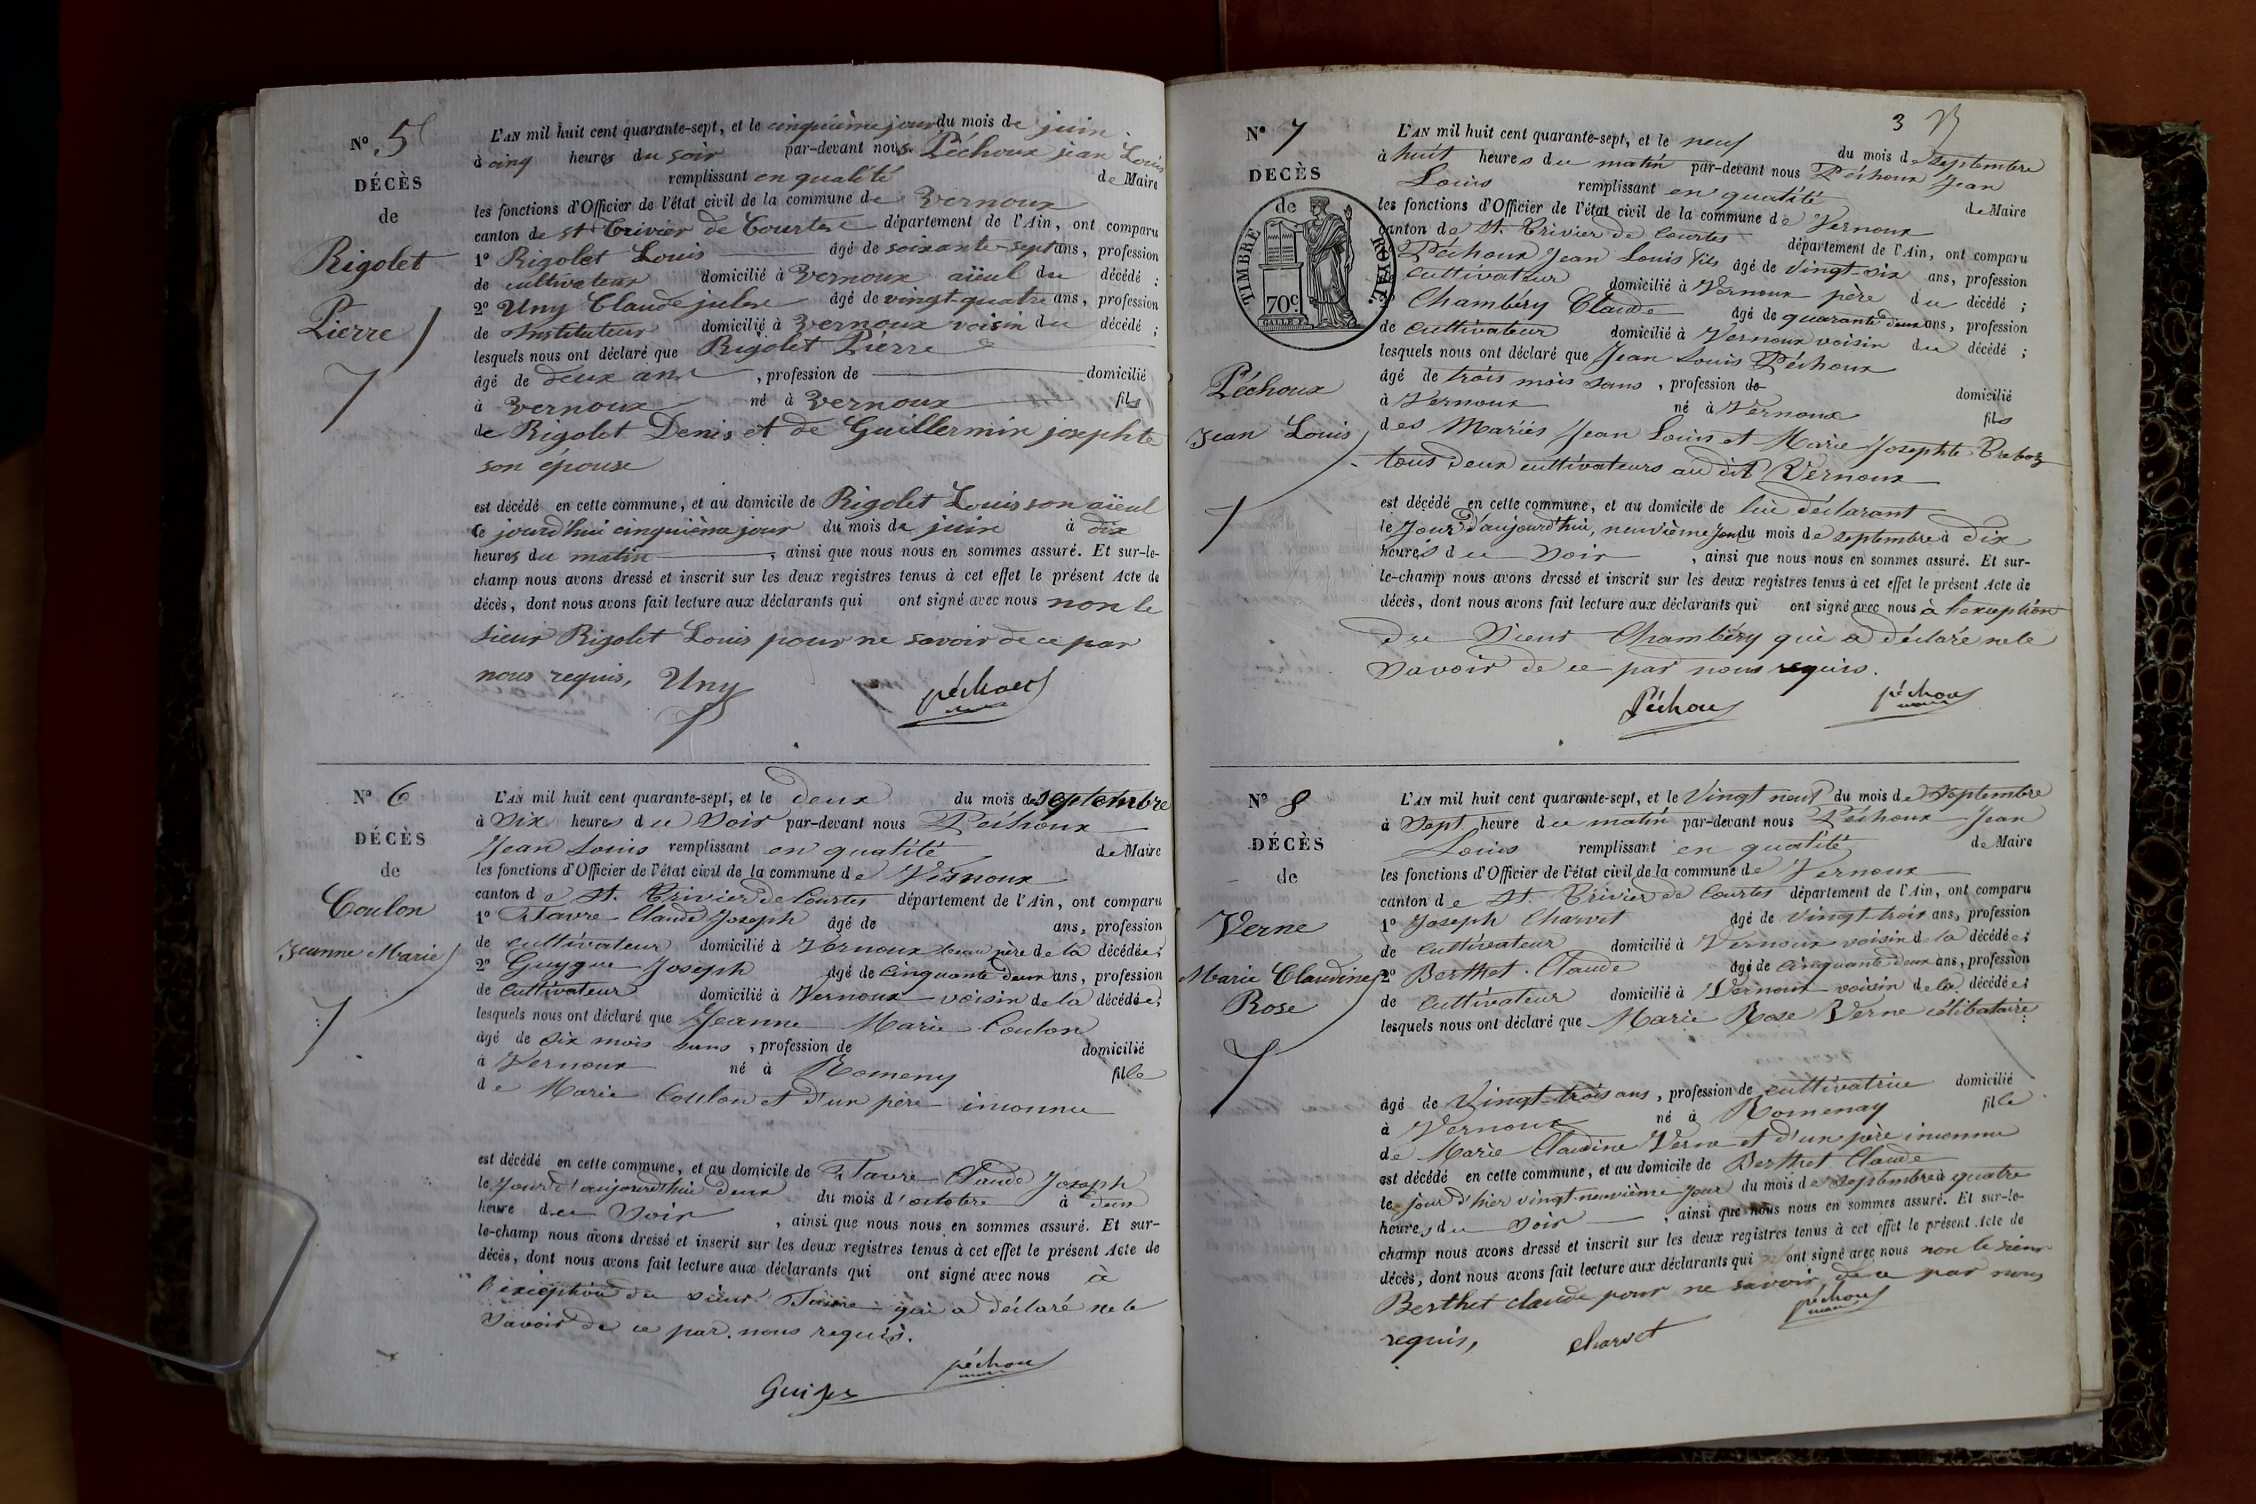 N° 5
DÉCÈS
de
Rigolet
Pierre
L'AN mil huit cent quarante-sept, et le cinquième jour du mois de juin
à cinq heures du soir par-devant nous Péchoux jean Louis
remplissant en qualité de Maire
les fonctions d'Officier de l'état civil de la commune de Vernoux
canton de St Trivier de Courtes département de l'Ain, ont comparu
1° Rigolet Louis âgé de soixante-sept ans, profession
de cultivateur domicilié à Vernoux aïeul du décédé ;
2° Uny Claude jules âgé de vingt-quatre ans, profession
de Instituteur domicilié à Vernoux voisin du décédé ;
lesquels nous ont déclaré que Rigolet Pierre
âgé de deux ans , profession de domicilié
à Vernoux né à Vernoux fils
de Rigolet Denis et de Guillermin josephte
son épouse
est décédé en cette commune, et au domicile de Rigolet Louis son aïeul
le jourd'hui cinquième jour du mois de juin à dix
heures du matin , ainsi que nous nous en sommes assuré. Et sur-le-
champ nous avons dressé et inscrit sur les deux registres tenus à cet effet le présent Acte de
décès, dont nous avons fait lecture aux déclarants qui ont signé avec nous non le
sieur Rigolet Louis pour ne savoir de ce par
nous requis, Uny péchoux
N° 6
DÉCÈS
de
Coulon
Jeanne Marie
L'AN mil huit cent quarante-sept, et le deux du mois de septembre
à Six heures du Soir par-devant nous Péchoux
Jean Louis remplissant en qualité de Maire
les fonctions d'Officier de l'état civil de la commune de Vernoux
canton de St. Trivier de Courtes département de l'Ain, ont comparu
1° Favre Claude Joseph âgé de ans, profession
de cultivateur domicilié à Vernoux beau père de la décédée ;
2° Guygue Joseph âgé de cinquante deux ans, profession
de cultivateur domicilié à Vernoux voisin de la décédée ;
lesquels nous ont déclaré que Jeanne Marie Coulon
âgé de dix mois sans , profession de domicilié
à Vernoux né à Romeny fille
de Marie Coulon et d'un père inconnu
est décédé en cette commune, et au domicile de Favre Claude Joseph
le Jour d'aujourd'hui deux du mois d'octobre à deux
heure du Soir , ainsi que nous nous en sommes assuré. Et sur-
le-champ nous avons dressé et inscrit sur les deux registres tenus à cet effet le présent Acte de
décès, dont nous avons fait lecture aux déclarants qui ont signé avec nous à
l'exception du sieur Favre qui a déclaré ne le
Savoir de ce par nous requis.
péchoux
3
N° 7
DÉCÈS
de
TIMBRE ROYAL.
70c.
Péchoux
Jean Louis
L'AN mil huit cent quarante-sept, et le neuf du mois de septembre
à huit heures du matin par-devant nous Péchoux Jean
Louis remplissant en qualité de Maire
les fonctions d'Officier de l'état civil de la commune de Vernoux
canton de St. Trivier de Courtes département de l'Ain, ont comparu
Péchoux Jean Louis fils âgé de vingt-six ans, profession
cultivateur domicilié à Vernoux père du décédé ;
Chambéry Claude âgé de quarante deux ans, profession
de cultivateur domicilié à Vernoux voisin du décédé ;
lesquels nous ont déclaré que Jean Louis Péchoux
âgé de trois mois sans , profession de domicilié
à Vernoux né à Vernoux fils
des Mariés Jean Louis et Marie Josephte
tous deux cultivateurs au dit Vernoux
est décédé en cette commune, et au domicile de lui déclarant
le Jour d'aujourd'hui, neuvième jour du mois de septembre à dix
heures du Soir , ainsi que nous nous en sommes assuré. Et sur-
le-champ nous avons dressé et inscrit sur les deux registres tenus à cet effet le présent Acte de
décès, dont nous avons fait lecture aux déclarants qui ont signé avec nous à l'exception
du Sieur Chambéry qui a déclaré ne le
Savoir de ce par nous requis.
Péchoux péchoux
N° 8
DÉCÈS
de
Verne
Marie Claudine
Rose
L'AN mil huit cent quarante-sept, et le Vingt neuf du mois de Septembre
à Sept heure du matin par-devant nous Péchoux Jean
Louis remplissant en qualité de Maire
les fonctions d'Officier de l'état civil de la commune de Vernoux
canton de St. Trivier de Courtes département de l'Ain, ont comparu
1° Joseph Charvet âgé de Vingt-trois ans, profession
de cultivateur domicilié à Vernoux voisin de la décédée ;
2° Berthet Claude âgé de cinquante deux ans, profession
de cultivateur domicilié à Vernoux voisin de la décédée ;
lesquels nous ont déclaré que Marie Rose Verne célibataire
âgé de Vingt-trois ans , profession de cultivatrice domicilié
à Vernoux né à Romenay fille
de Marie Claudine Verne et d'un père inconnu
est décédé en cette commune, et au domicile de Berthet Claude
le jour d'hier vingt neuvième jour du mois de Septembre à quatre
heures du Soir ; ainsi que nous nous en sommes assuré. Et sur-le-
champ nous avons dressé et inscrit sur les deux registres tenus à cet effet le présent Acte de
décès, dont nous avons fait lecture aux déclarants qui ont signé avec nous non le sieur
Berthet claude pour ne savoir, de ce par nous
requis, charvet péchoux